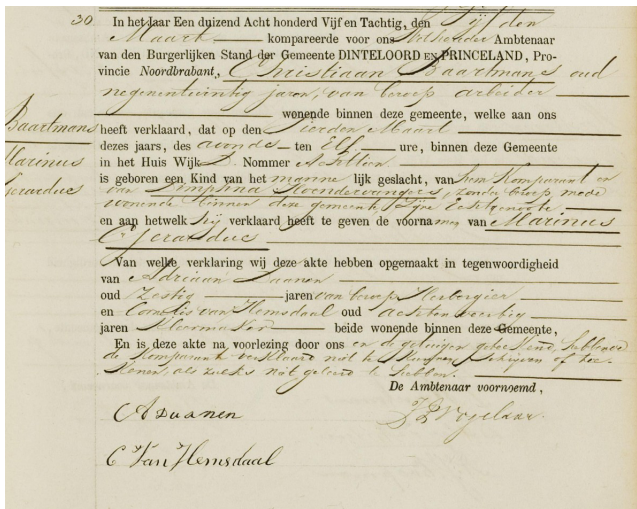 30
In het Jaar Een duizend Acht honderd Vijf en Tachtig, den Vijfden
Maart kompareerde voor ons Ambtenaar
van den Burgerlijken Stand der Gemeente DINTELOORD EN PRINCELAND, Pro-
vincie Noordbrabant, Christiaan Baartmans oud
negenentwintig jaren, van beroep arbeider
wonende binnen deze gemeente, welke aan ons
Baartmans
heeft verklaard, dat op den Vierden Maart
dezes jaars, des avonds ten Elf ure, binnen deze Gemeente
Marinus
in het Huis Wijk Nommer Achttien
Gerardus
is geboren een Kind van het manne lijk geslacht, van hem Komparant en
van Dimphna zonder beroep mede
wonende binnen deze gemeente, zijne Echtgenoote
en aan hetwelk hij verklaard heeft te geven de voornamen van Marinus
Gerardus
Van welke verklaring wij deze akte hebben opgemaakt in tegenwoordigheid
van Adriaan Daanen
oud Zestig jaren van beroep Herbergier
en Cornelis van Hemsdaal oud achtenveertig
jaren Kleermaker beide wonende binnen deze Gemeente,
En is deze akte na voorlezing door ons en de getuigen geteekend, hebbende
de Komparant verklaard niet te kunnen schrijven of tee-
kenen, als zulks niet geleerd te hebben.
De Ambtenaar voornoemd,
A Daanen
Vogelaar.
C Van Hemsdaal